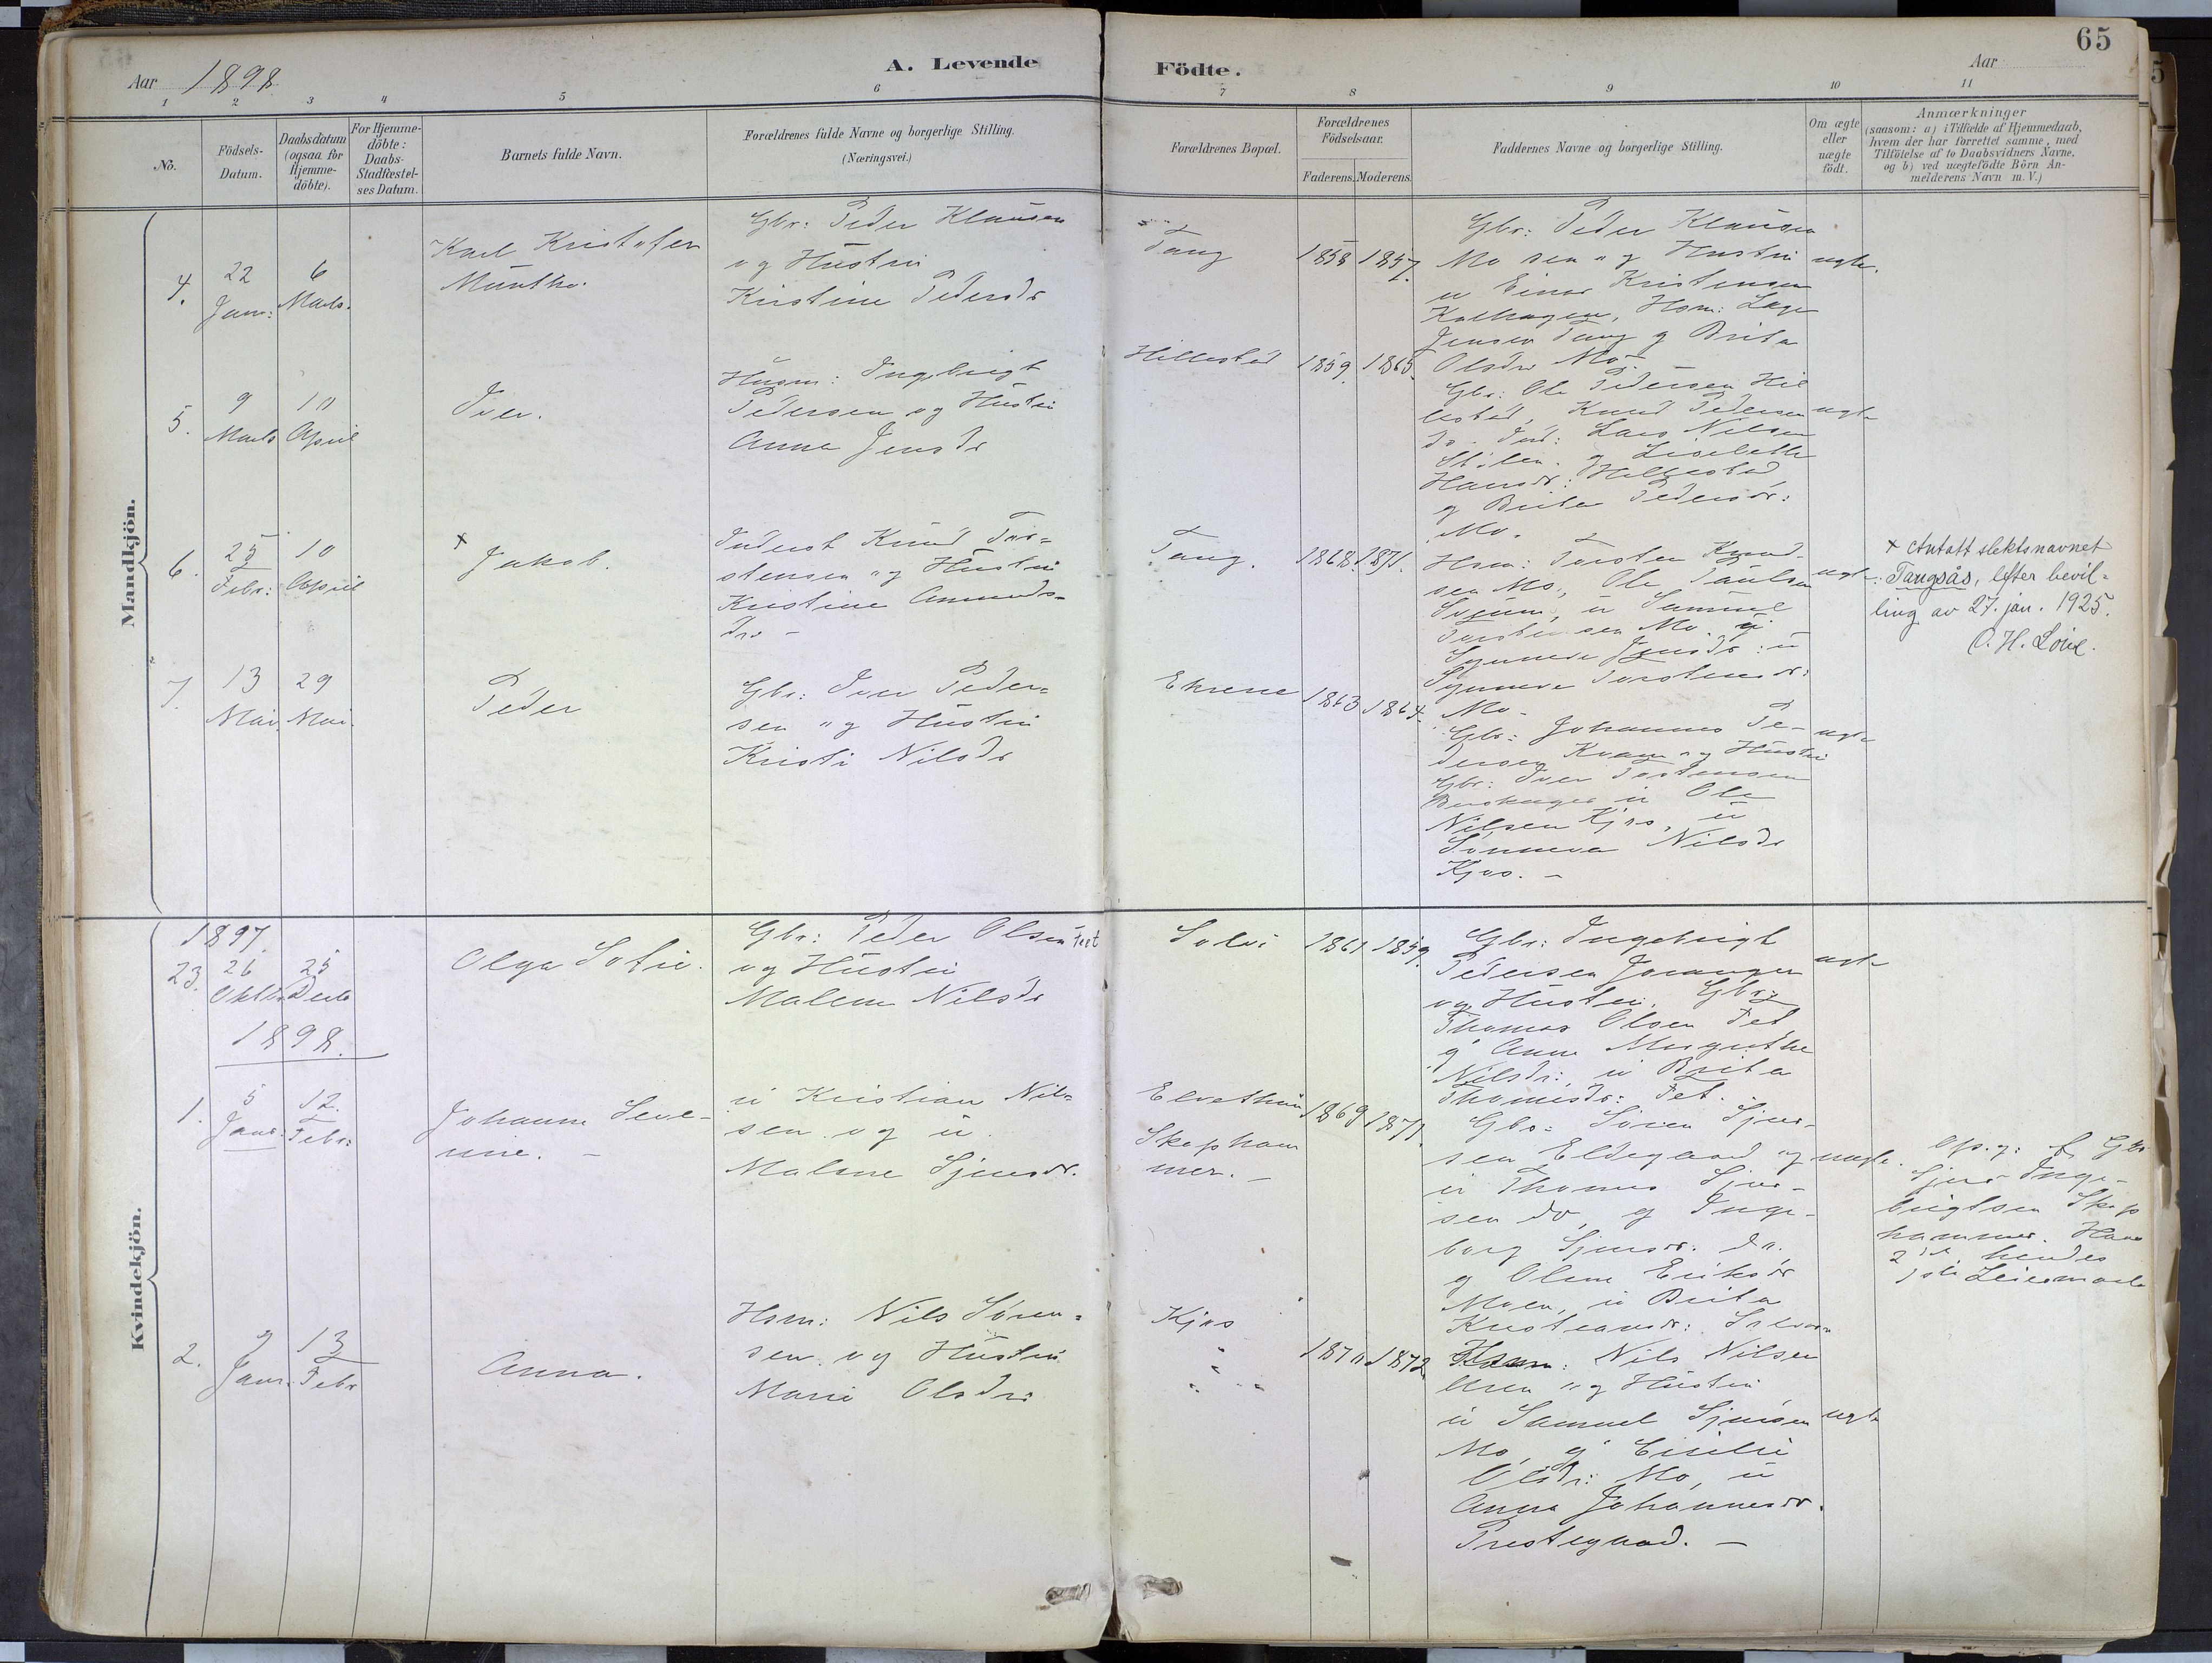 65
Aar 1898
A. Levende
Födte.
Aar
1 2 3 4 5 6 7 8 9 10 11
No.
Födsels-
Datum.
Daabsdatum
(ogsaa for
Hjemme-
döbte).
For Hjemme-
döbte:
Daabs-
Stadfæstel-
ses Datum.
Barnets fulde Navn.
Forældrenes fulde Navne og borgerlige Stilling.
(Næringsvei.)
Forældrenes Bopæl.
Forældrenes
Födselsaar.
Faderens. Moderens.
Faddernes Navne og borgerlige Stilling.
Om ægte
eller
uægte
födt.
Anmærkninger
(saasom: a) i Tilfælde af Hjemmedaab,
hvem der har forrettet samme, med
Tilföielse af to Daabsvidners Navne,
og b) ved uægtefödte Börn An-
melderens Navn m. V.)
Mandkjön.
4.
22
Janr:
6
Marts.
Karl Kristofer
Munthe.
Gbr: Peder Klausen
og Hustru
Kristine Pedersdr
Tang
1858 1857.
Gbr: Peder Klausen
Mo sen og Hustru
u Einar Kristensen
Kalhagen, Hsm: Lage
Jensen Tang g Brita
Olsdr Mo
ægte.
5.
9
Marts
10
April
Iver.
Husm: Ingebrigt
Pedersen og Hustru
Anna Jensdr
Hillestad
1859. 1865.
Gbr: Ole Pedersen Hil
lestad, Knud Pedersen
do. Ind: Lars Nilsen
g Lisebeth
Hansdr: Hillestad
g Brita Pedersdr:
Mo.
ægte
6.
25
Febr:
10
April
x
Jakob.
Inderst Knud Tor=
stensen og Hustru
Kristine Amunds=
dr. -
Tang.
1868. 1871.
Hsm: Torsten Knud-
sen Mo, Ole Paulsen
u Samuel
Torstensen Mo g.
Synneva Jensdr: u
Synneva Torstensdr:
Mo -
ægte.
x Antatt slektsnavnet
Tangsås, efter bevil=
ling av 27. jan. 1925.
7.
13
Mai
29
Mai.
Peder
Gbr: Iver Peder=
sen og Hustru
Kristi Nilsdr
Ehrene
1863 1864.
Gbr: Johannes Pe-
dersen Kvam og Hustru
Gbr: Iver Torstensen
u Ole
Nilsen Kjos, u
Sunneva Nilsdr
Kjos. -
ægte
Kvindekjön.
1897.
23.
26
Oktbr
25
Decb
Olga Sofie.
Gbr: Peder Olsen Fet
og Hustru
Malene Nilsdr
Solvi
1861 1859.
Gbr: Ingebrigt
Pedersen Joranger
og Hustru, Gbr:
Thomas Olsen Fet
g Anne Margrethe
Nilsdr:, u Brita
Thomasdr: Fet.
ægte
1898.
1.
5
Janr:
12.
Febr:
Johanne Seve-
rine. -
u Kristian Nil=
sen og u.
Malene Sjursdr.
Elvethun
Skapham
mer. -
1869 1871.
Gbr: Sören Sjur-
sen Eldegaard og
u Thomas Sjur-
sen do, g Inge-
borg Sjursdr: do.
g Olene Eriksdr
Moen, u Brita
Kristiansdr:
uægte.
Op.g: f. Gbr
Sjur Inge-
brigtsen Skap
hammer. Hans
2det hendes
1ste Leiermaal
2.
9
Janr.
13
Febr
Anna.
Hsm: Nils Sören=
sen og Hustru
Marie Olsdr:
Kjos
1870 1872
Hsm: Nils Nilsen
og Hustru
u Samuel Sjursen
Mo, g Cicilie
Olsdr: Mo, u
Anna Johannesdr.
Prestegaard. -
ægte